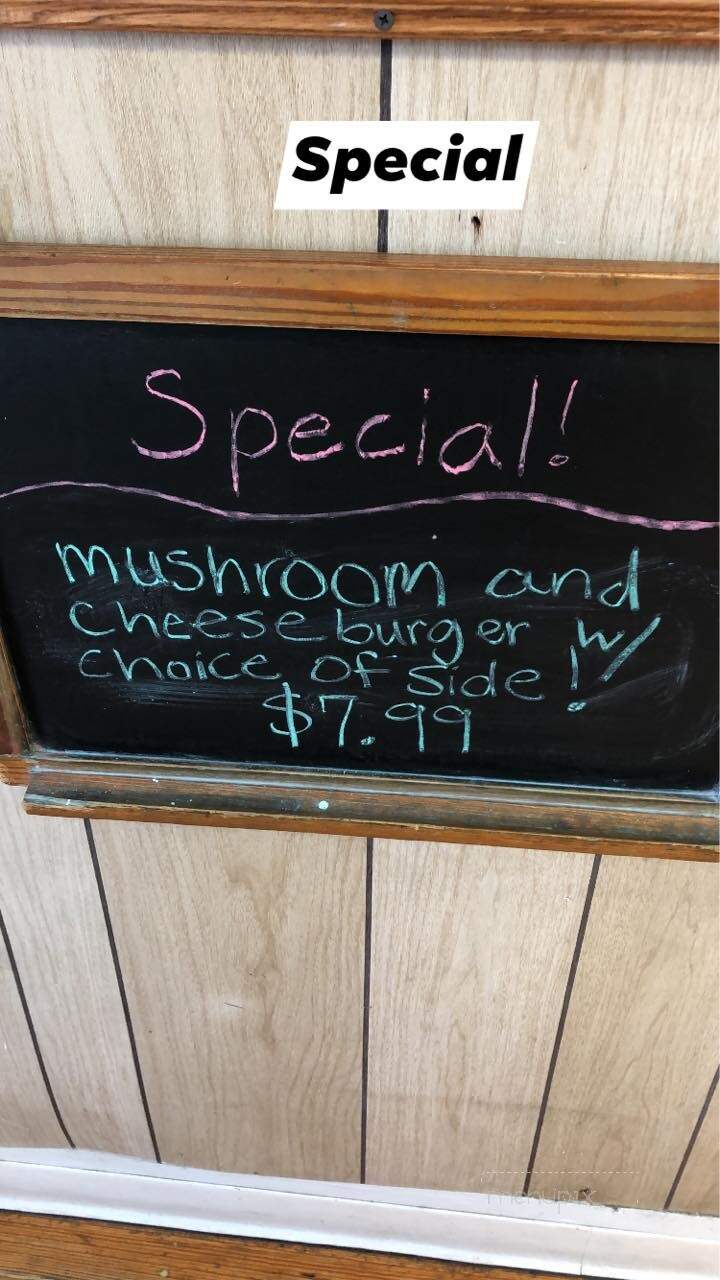 Special
Special!
mushroom and
cheeseburger w/
choice of side!
$7.99
menupix